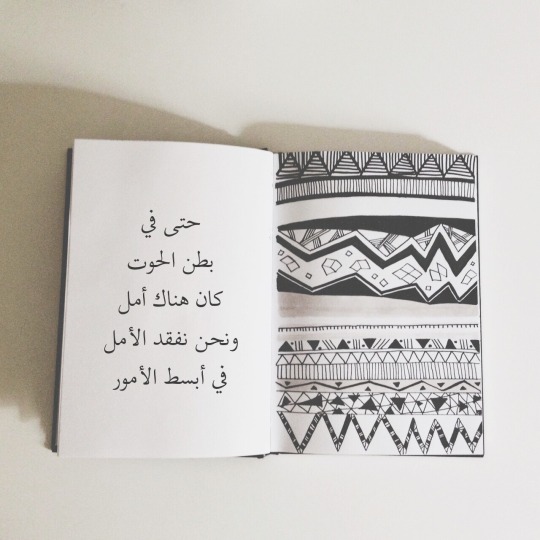 حتى في
بطن الحوت
كان هناك أمل
ونحن نفقد الأمل
في أبسط الأمور